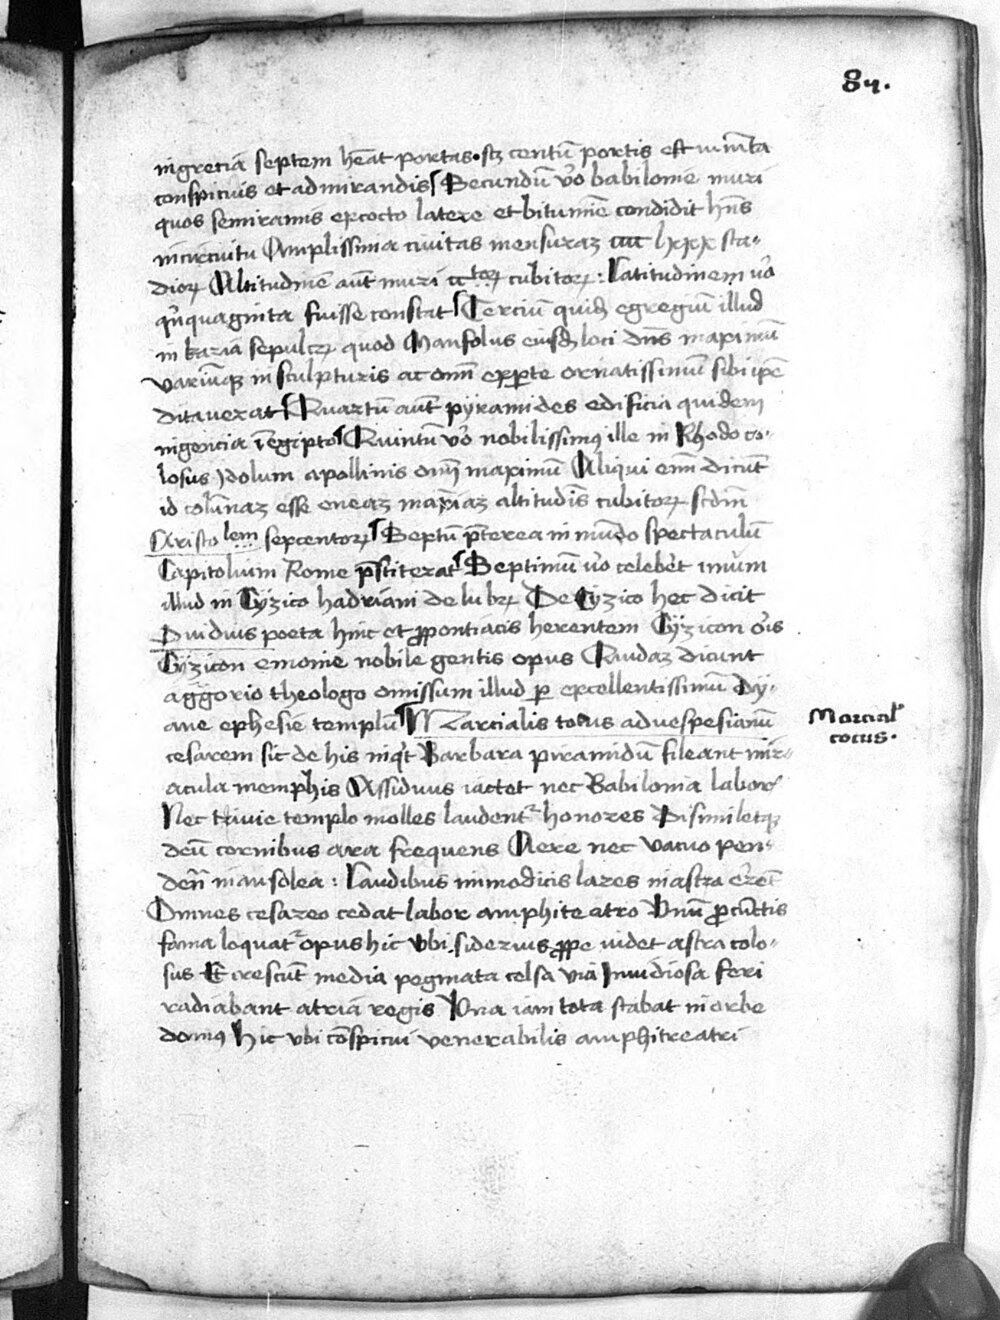 84.
ingrecia septem hēat portas. sꝫ centū portis est munita
conspicuis et admirandis Secundū v̄o babilonie muri
quos semiramis ex cocto latere et bitumīe condidit hn̄s
incircuitu Amplissima civitas mensuraꝫ cccc lxxx sta-
dioꝝ Altitudinē aut̄ muri cctoꝝ cubitoꝝ: Latitudinem v̄o
q̄nquaginta fuisse constat Terciū quidē egregiū illud
in karia sepulcꝝ quod Mausolus eiusdē loci dn̄s maximū
variūqꝫ in sculpturis ac omni ex ꝑte ornatissimū sibi ip̄e
ditaverat Quartū aut̄ pyramides edificia quidem
ingencia ī egipto Quintū v̄o nobilissimꝰ ille in Rhodo co-
losus ydolum apollinis om̄i maximū Aliqui em̄ dicūt
id colūnaꝫ esse eneaꝫ maximaꝫ altitudīs cubitoꝝ scdm̄
Aristotilem sepcentoꝝ Septū p̄terea in mundo spectaculū
Capitolium Rome p̄stiterat Septimū v̄o celeberrimum
illud in Cyzico hadriani delubꝝ De Cyzico hec dicit
Ovidius poeta hinc et ꝓpontiacis herentem Cyzicon oris
Cyzicon emonie nobile gentis opus Caudaꝫ dicunt
a ggorio theologo omissum illud ꝑ excellentissimū Dy-
ane ephesie templū Marcialis totus ad vespesianū
cesarem sic de his inq̄t Barbara piramidū sileant mir-
acula memphis Assiduus iactet nec Babilonia labor
Nec trivie templo molles laudent᷑ honores Disimiletqꝫ
deū cornibus ara frequens Aere nec vacuo pen-
den̄ mausolea: Laudibus immodicis lares in astra ferēt
Omnes cesareo cedat labor amphiteatro Unū ꝓ cūctis
fama loquat᷑ opus hic ubi siderius ꝓpe videt astra colo-
sus Et crescūt media pegmata celsa via Invidiosa feri
radiabant atria regis Una iam tota stabat in orbe
domꝰ hic ubi cōspicui venerabilis amphitreatri
Marcial'
cocus.